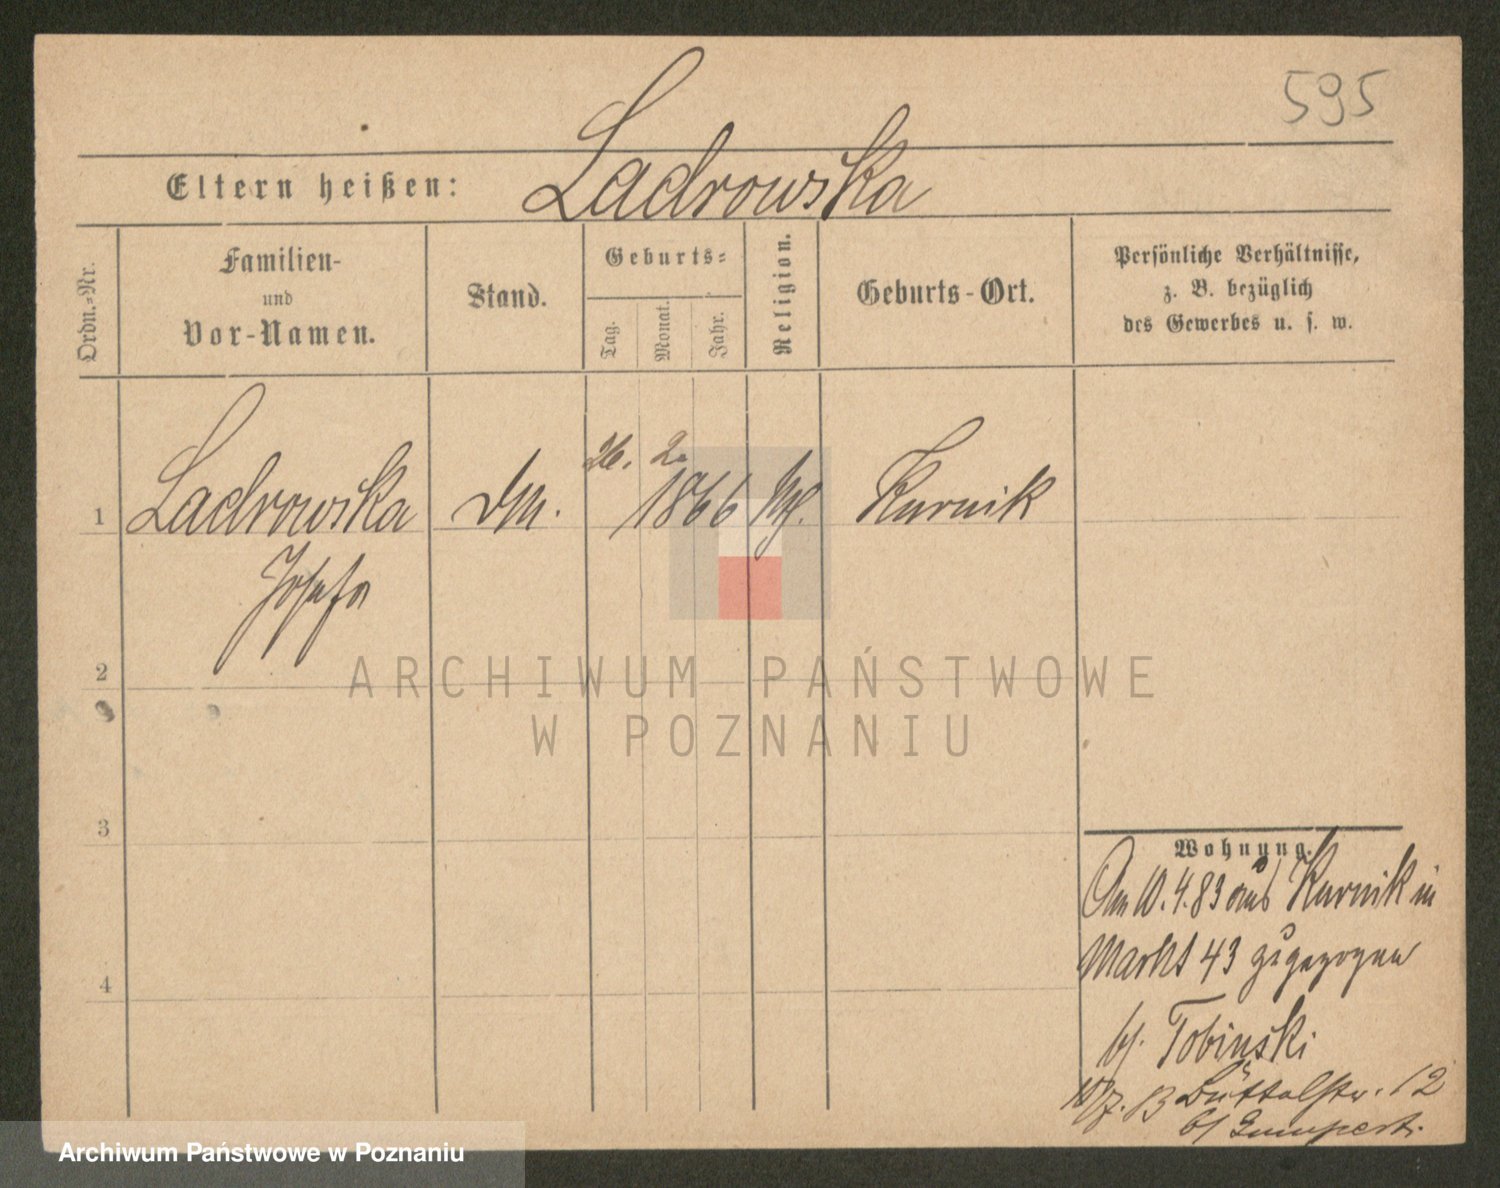 595
Eltern heißen: Ladrowska
Ordn.-Nr.
Familien-
und
Vor-Namen.
Stand.
Geburts-
Tag.
Monat.
Jahr.
Religion.
Geburts-Ort.
Persönliche Verhältnisse,
z. B. bezüglich
des Gewerbes u. s. w.
26. 2.
1 Ladrowska 1866 Kurnik
Josefa
2
3
4
Wohnung.
Am 10.4.83 aus Kurnik in
Markt 43 zugezogen
b/. Tobinski
Büttelstr. 12
b/ Gumpert.
ARCHIWUM PAŃSTWOWE
W POZNANIU
Archiwum Państwowe w Poznaniu